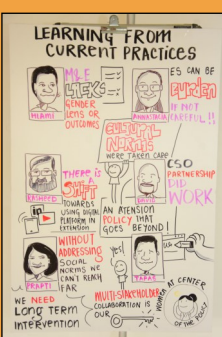 LEARNING FROM
CURRENT PRACTICES
M&E
LACKS
GENDER
LENS OR
OUTCOMES
ES CAN BE
BURDEN
IF NOT
CAREFUL!!
CULTURAL
NORMS
WERE TAKEN CARE
THERE IS
A SHIFT
TOWARDS
USING DIGITAL
PLATFORM IN
EXTENSION
RASHEED
DAVID
CSO
PARTNERSHIP
DID
WORK
AN
POLICY THAT
GOES BEYOND!
WITHOUT
ADDRESSING
SOCIAL
NORMS WE
CAN'T REACH
FAR
yet
PRAPTI
TAPAS
WE NEED
LONG TERM
INTERVENTION
MULTI-STAKEHOLDER
COLLABORATION IS
OUR
WOMEN AT CENTER
OF THE POLICY